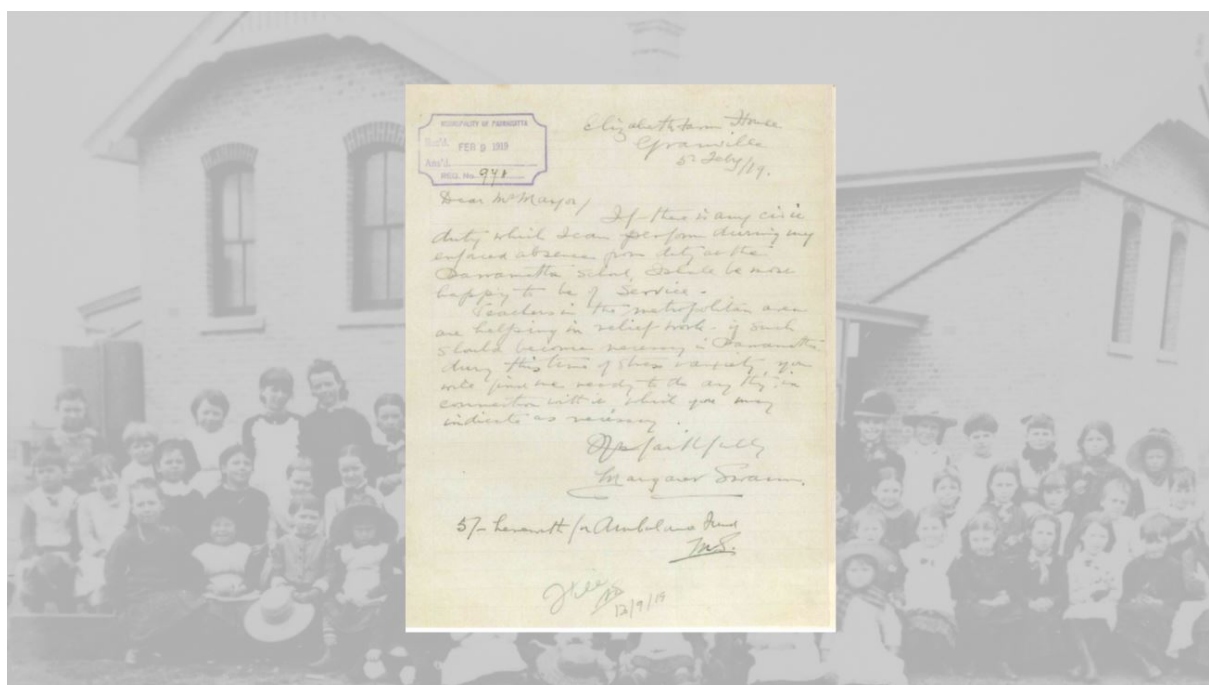 MUNICIPALITY OF PARRAMATTA
Rec'd. FEB 9 1919
Ans'd.
REGL. No. 941
Elizabeth Farm House
Granville
5 Feby/19.
Dear Mr Mayor/
If there is any civic
duty which I can perform during my
enforced absence from duty at the
Parramatta School, I shall be most
happy to be of Service.
Teachers in the metropolitan area
are helping in relief work - if such
should become necessary in Parramatta
during this time of stress & anxiety, you
will find me ready to do anything in
connection with it which you may
indicate as necessary.
faithfully
Margaret Swann.
5/- herewith for Ambulance Fund
M.S.
12/9/19